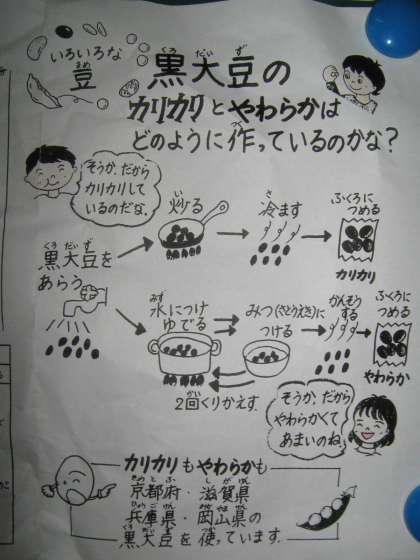 いろいろな
豆
黒大豆の
カリカリとやわらかは
どのように作っているのかな?
そうか、だから
カリカリして
いるのだな。
炒る
冷ます
ふくろに
つめる
カリカリ
黒大豆を
あらう
水につけ
ゆでる
みつ(さとうえき)に
つける
かんそう
する
ふくろに
つめる
やわらか
2回くりかえす。
そうか、だから
やわらかくて
あまいのね。
カリカリもやわらかも
京都府・滋賀県
兵庫県・岡山県の
黒大豆を使っています。